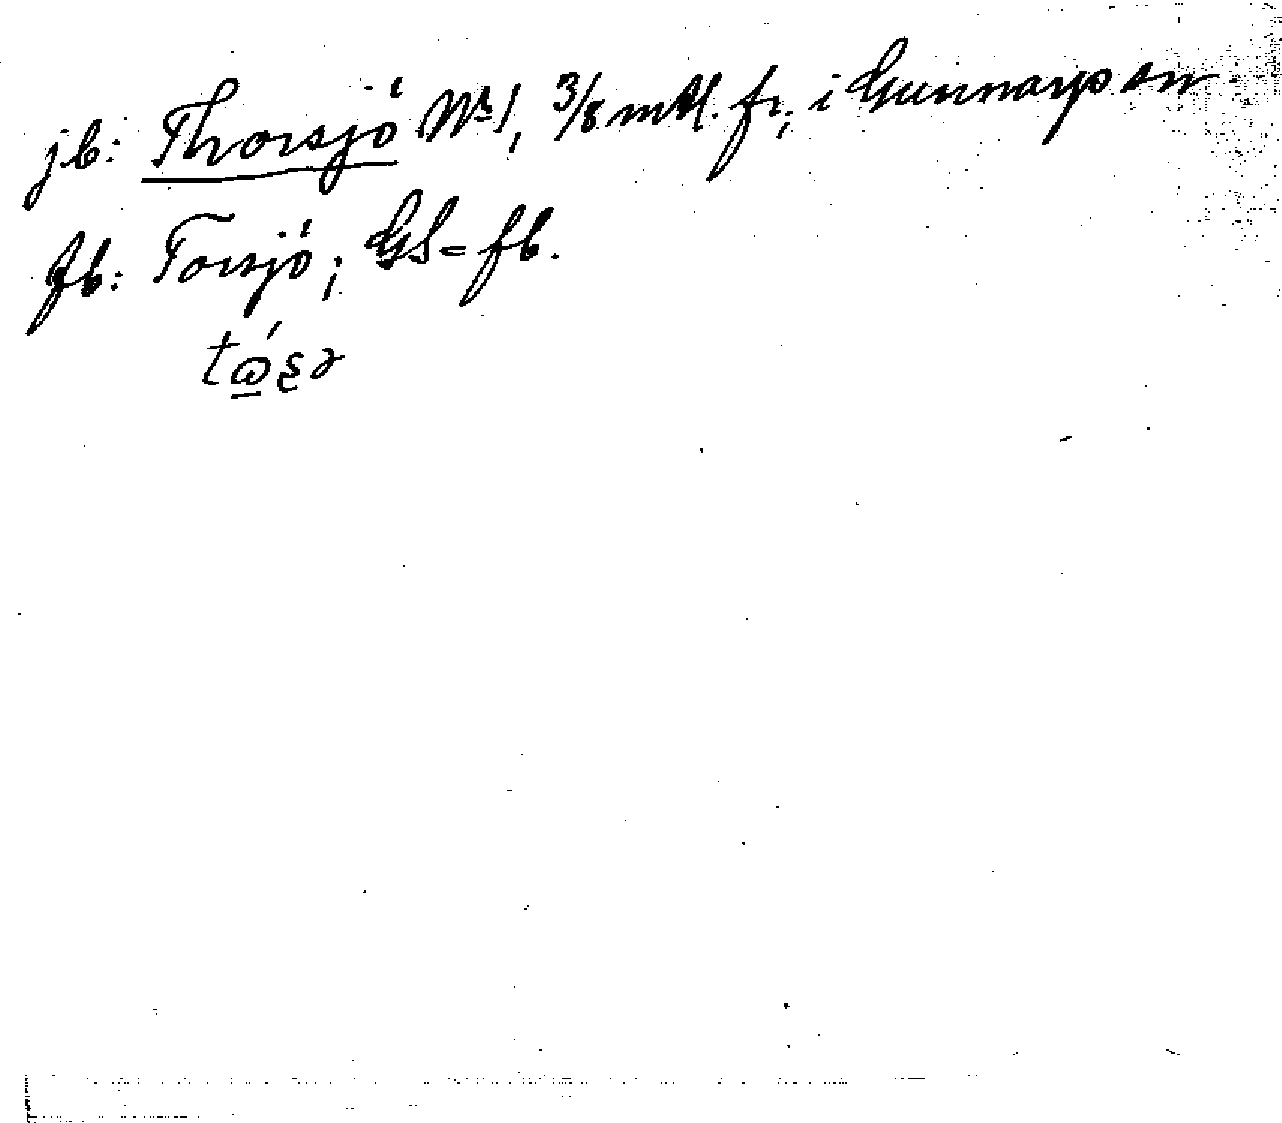 jb: Thorsjö Nr 1, 3/8 mtl. fr., i Gunnarps sn
fb: Torsjö; GS = fb.